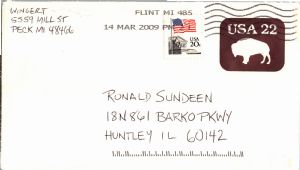 WINGERT
5559 MILL ST
PECK MI 48466
FLINT MI 485
14 MAR 2009 PM
USA
20c
USA 22
RONALD SUNDEEN
18N861 BARKO PKWY
HUNTLEY IL 60142